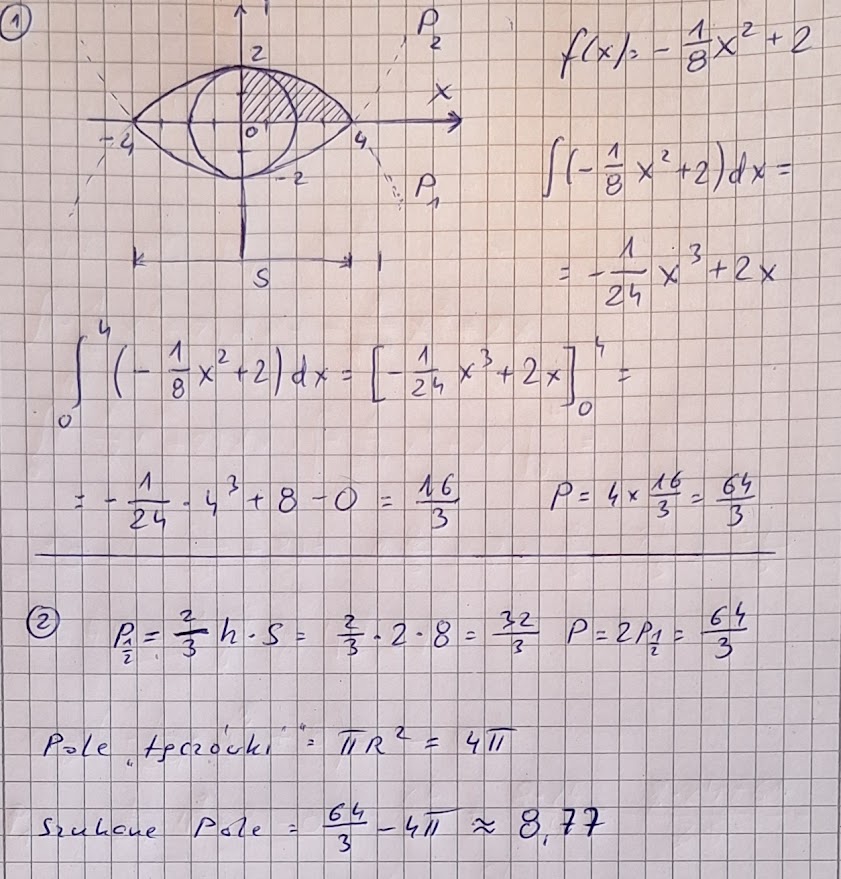 ①
2
P₂
f(x) = - 1/8 x² + 2
x
-4
0
4
-2
P₁
∫(- 1/8 x² + 2) dx =
S
= - 1/24 x³ + 2x
∫₀⁴ (- 1/8 x² + 2) dx = [- 1/24 x³ + 2x]₀⁴ =
= - 1/24 · 4³ + 8 - 0 = 16/3 P = 4 × 16/3 = 64/3
② P_{1/2} = 2/3 h · S = 2/3 · 2 · 8 = 32/3 P = 2P_{1/2} = 64/3
Pole „tęczówki“ = πR² = 4π
Szukane Pole = 64/3 - 4π ≈ 8,77